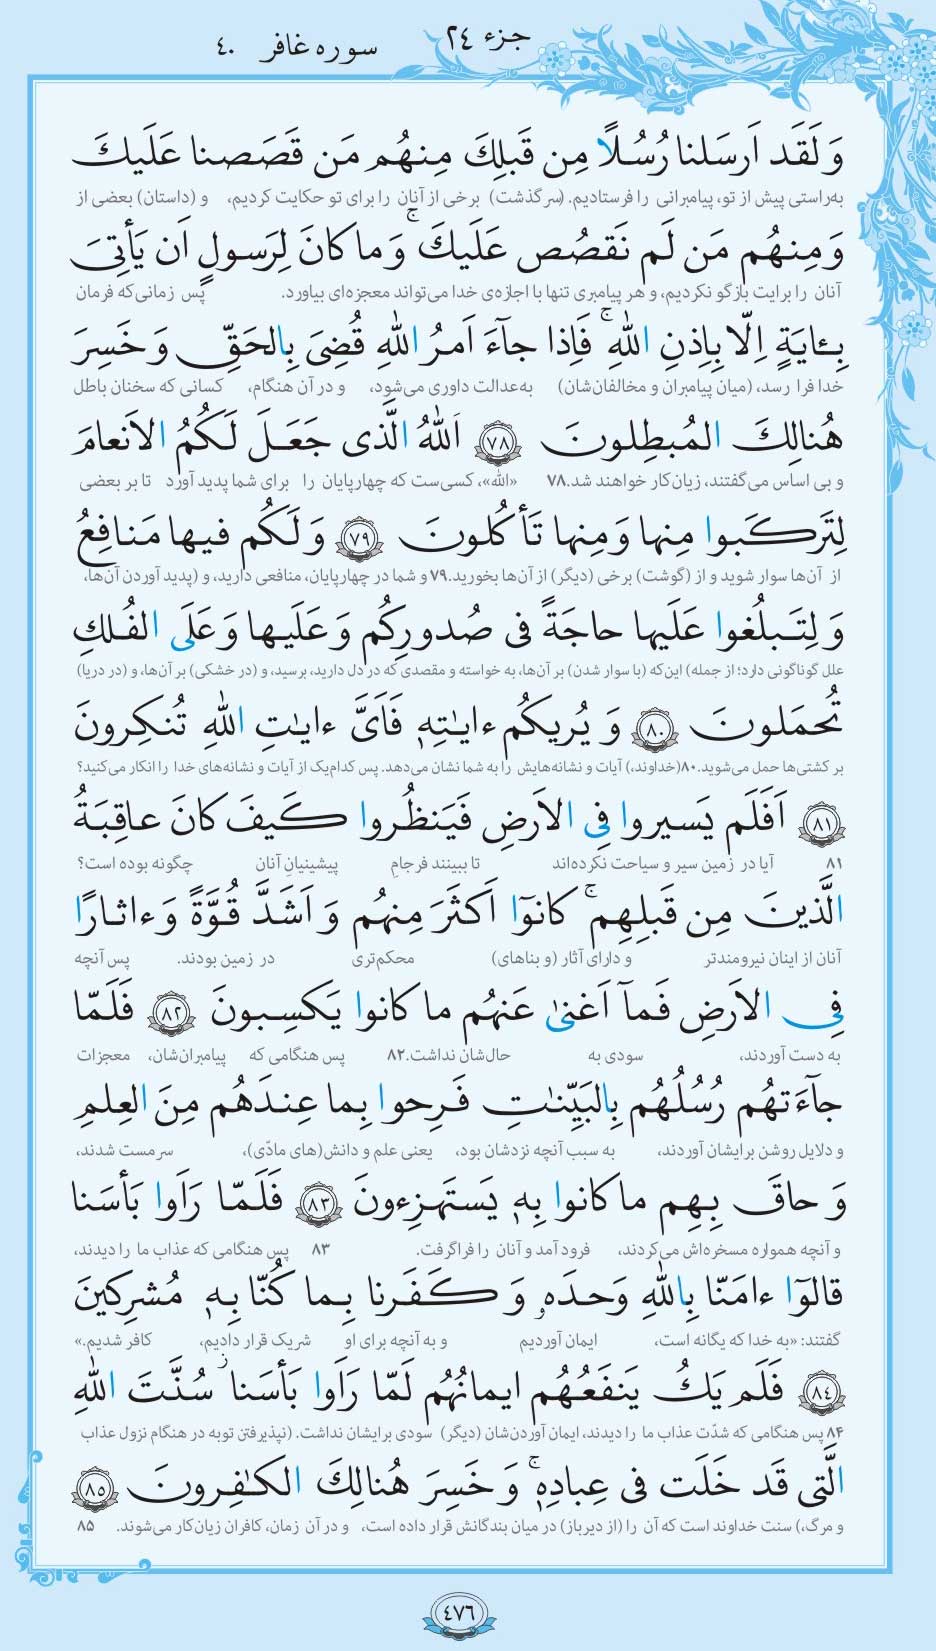 جزء ۲۴
سوره غافر ۴۰
وَ لَقَد اَرسَلنا رُسُلًا مِن قَبلِكَ مِنهُم مَن قَصَصنا عَلَيكَ
به‌راستی پیش از تو، پیامبرانی را فرستادیم. (سرگذشت) برخی از آنان را برای تو حکایت کردیم، و (داستان) بعضی از
وَ مِنهُم مَن لَم نَقصُص عَلَيكَ ۚ وَ ما كانَ لِرَسولٍ اَن يَأتِىَ
آنان را برایت بازگو نکردیم، و هر پیامبری تنها با اجازه‌ی خدا می‌تواند معجزه‌ای بیاورد. پس زمانی‌که فرمان
بِـٔايَةٍ اِلّا بِاِذنِ اللّٰهِ ۚ فَاِذا جآءَ اَمرُ اللّٰهِ قُضِىَ بِالحَقِّ وَ خَسِرَ
خدا فرا رسد، (میان پیامبران و مخالفان‌شان) به‌عدالت داوری می‌شود، و در آن هنگام، کسانی که سخنان باطل
هُنالِكَ المُبطِلونَ ﴿۷۸﴾ اَللّٰهُ الَّذى جَعَلَ لَكُمُ الاَنعامَ
و بی اساس می‌گفتند، زیان‌کار خواهند شد.۷۸ «الله»، کسی‌ست که چهارپایان را برای شما پدید آورد تا بر بعضی
لِتَركَبوا مِنها وَ مِنها تَأكُلونَ ﴿۷۹﴾ وَ لَكُم فيها مَنافِعُ
از آن‌ها سوار شوید و از (گوشت) برخی (دیگر) از آن‌ها بخورید.۷۹ و شما در چهارپایان، منافعی دارید، و (پدید آوردن آن‌ها،
وَ لِتَبلُغوا عَلَيها حاجَةً فى صُدورِكُم وَ عَلَيها وَ عَلَى الفُلكِ
علل گوناگونی دارد؛ از جمله) این‌که (با سوار شدن) بر آن‌ها، به خواسته و مقصدی که در دل دارید، برسید، و (در خشکی) بر آن‌ها، و (در دریا)
تُحمَلونَ ﴿۸۰﴾ وَ يُريكُم ءايٰتِهٖ فَاَىَّ ءايٰتِ اللّٰهِ تُنكِرونَ
بر کشتی‌ها حمل می‌شوید.۸۰ (خداوند،) آیات و نشانه‌هایش را به شما نشان می‌دهد. پس کدام‌یک از آیات و نشانه‌های خدا را انکار می‌کنید؟
﴿۸۱﴾ اَفَلَم يَسيروا فِى الاَرضِ فَيَنظُروا كَيفَ كانَ عاقِبَةُ
۸۱ آیا در زمین سیر و سیاحت نکرده‌اند تا ببینند فرجامِ پیشینیانِ آنان چگونه بوده است؟
الَّذينَ مِن قَبلِهِم ۚ كانوٓا اَكثَرَ مِنهُم وَ اَشَدَّ قُوَّةً وَ ءاثارًا
آنان از اینان نیرومندتر و دارای آثار (و بناهای) محکم‌تری در زمین بودند. پس آنچه
فِى الاَرضِ فَمآ اَغنىٰ عَنهُم ما كانوا يَكسِبونَ ﴿۸۲﴾ فَلَمّا
به دست آوردند، سودی به حال‌شان نداشت.۸۲ پس هنگامی که پیامبران‌شان، معجزات
جآءَتهُم رُسُلُهُم بِالبَيِّنٰتِ فَرِحوا بِما عِندَهُم مِنَ العِلمِ
و دلایل روشن برایشان آوردند، به سبب آنچه نزدشان بود، یعنی علم و دانش(های مادّی)، سرمست شدند،
وَ حاقَ بِهِم ما كانوا بِهٖ يَستَهزِءونَ ﴿۸۳﴾ فَلَمّا رَاَوا بَأسَنا
و آنچه همواره مسخره‌اش می‌کردند، فرود آمد و آنان را فراگرفت. ۸۳ پس هنگامی که عذاب ما را دیدند،
قالوٓا ءامَنّا بِاللّٰهِ وَحدَهٗ وَ كَفَرنا بِما كُنّا بِهٖ مُشرِكينَ
گفتند: «به خدا که یگانه است، ایمان آوردیم و به آنچه برای او شریک قرار دادیم، کافر شدیم.»
﴿۸۴﴾ فَلَم يَكُ يَنفَعُهُم ايمانُهُم لَمّا رَاَوا بَأسَنا ۖ سُنَّتَ اللّٰهِ
۸۴ پس هنگامی که شدّت عذاب ما را دیدند، ایمان آوردن‌شان (دیگر) سودی برایشان نداشت. (نپذیرفتن توبه در هنگام نزول عذاب
الَّتى قَد خَلَت فى عِبادِهٖ ۚ وَ خَسِرَ هُنالِكَ الكٰفِرونَ ﴿۸۵﴾
و مرگ،) سنت خداوند است که آن را (از دیرباز) در میان بندگانش قرار داده است، و در آن زمان، کافران زیان‌کار می‌شوند. ۸۵
۴۷۶